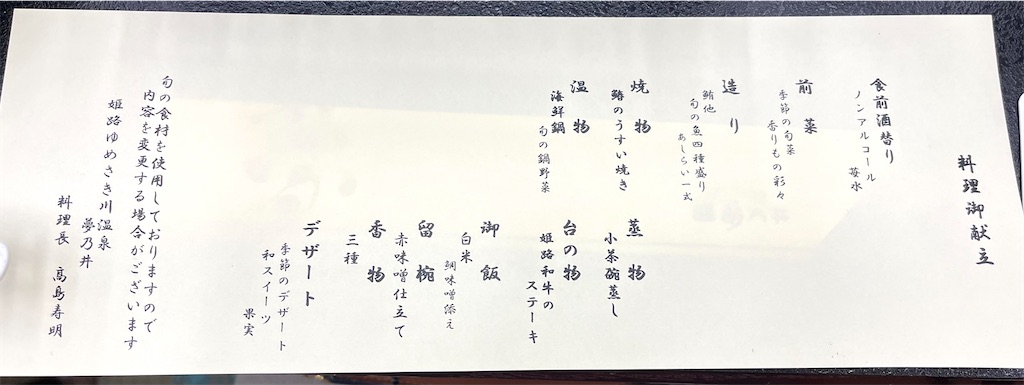 料理御献立
食前酒替り
ノンアルコール 苺水
前菜
季節の旬菜
香りもの彩々
造り
鮪他
旬の魚四種盛り
あしらい一式
焼物
鰆のうすい焼き
温物
海鮮鍋
旬の鍋野菜
蒸物
小茶碗蒸し
台の物
姫路和牛の
ステーキ
御飯
白米
鯛味噌添え
留椀
赤味噌仕立て
香物
三種
デザート
季節のデザート
和スイーツ
果実
旬の食材を使用しておりますので
内容を変更する場合がございます
姫路ゆめさき川温泉
夢乃井
料理長 高島寿明